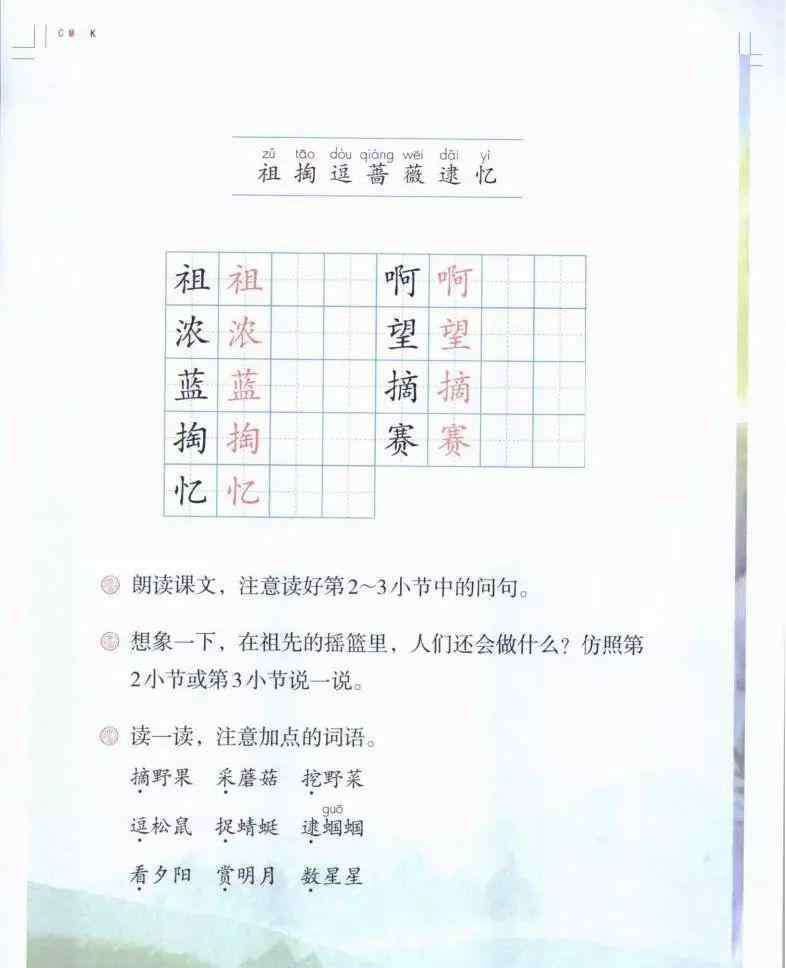 C M K
zǔ tāo dòu qiáng wēi dǎi yì
祖 掏 逗 蔷 薇 逮 忆
祖 祖 啊 啊
浓 浓 望 望
蓝 蓝 摘 摘
掏 掏 赛 赛
忆 忆
朗读课文，注意读好第2~3小节中的问句。
想象一下，在祖先的摇篮里，人们还会做什么？仿照第
2小节或第3小节说一说。
读一读，注意加点的词语。
摘野果 采蘑菇 挖野菜
guō
逗松鼠 捉蜻蜓 逮蝈蝈
看夕阳 赏明月 数星星